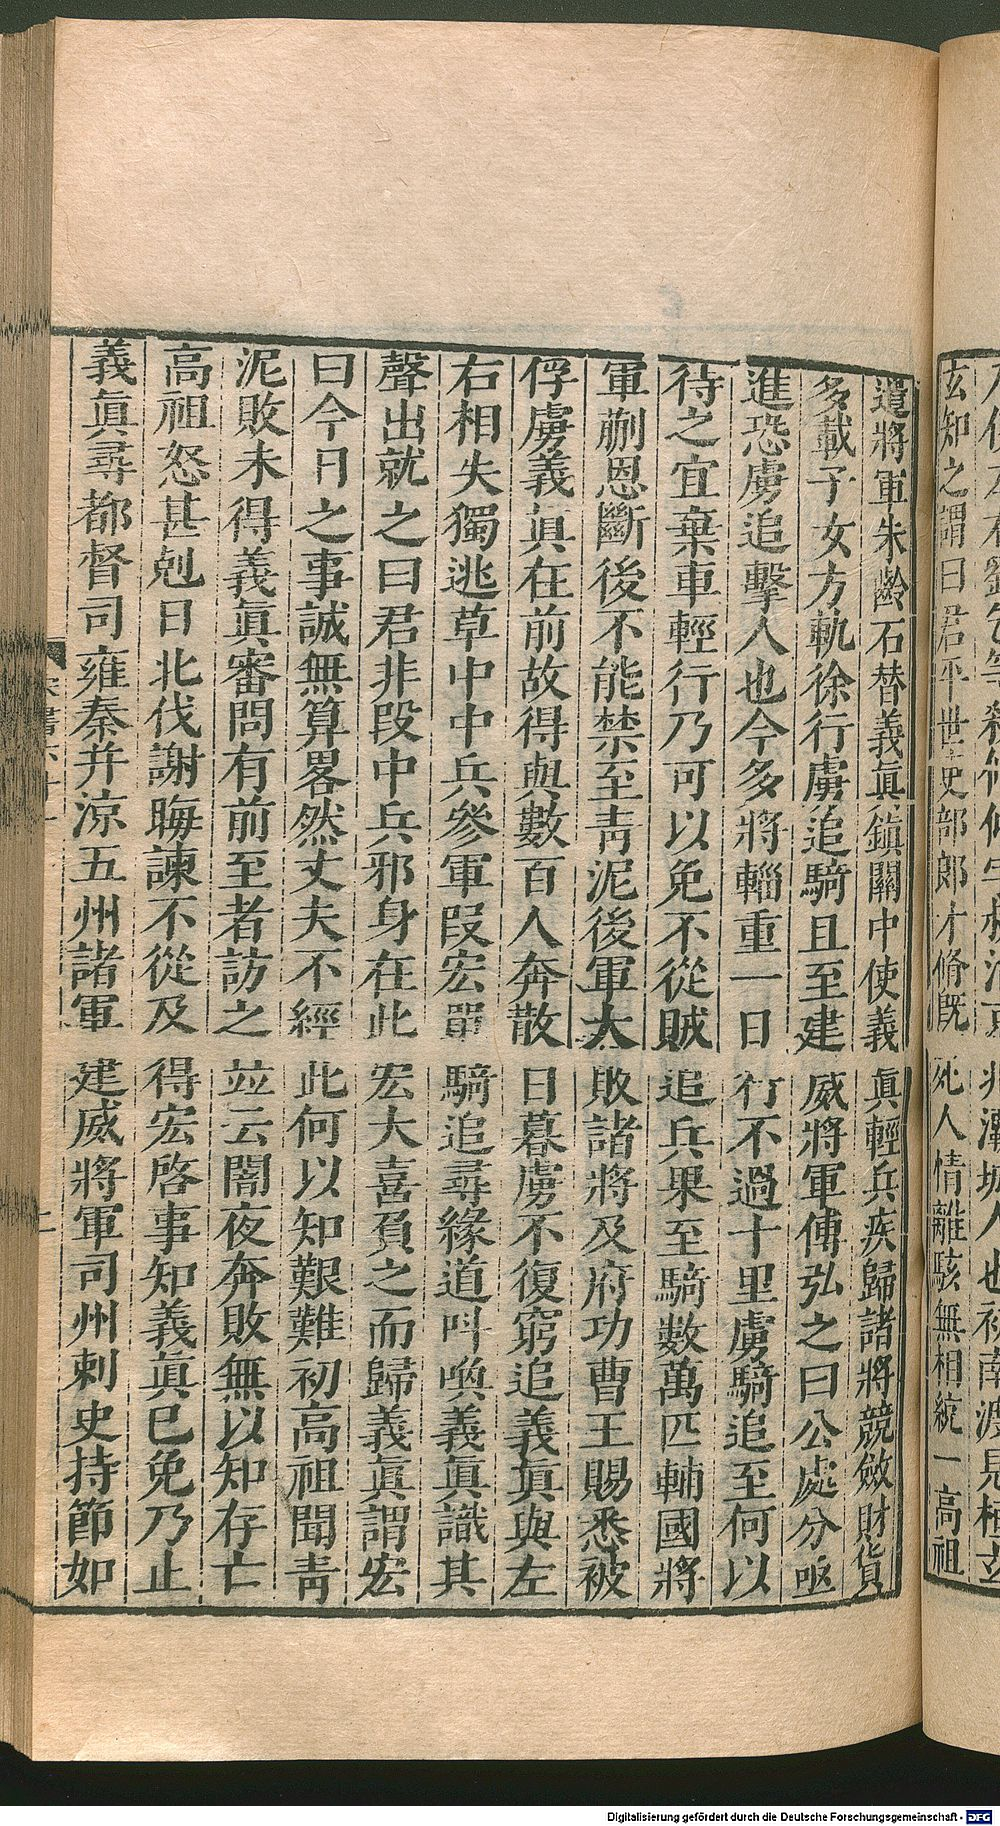 玄知之謂曰君平世吏部郎才脩既死人情離駭無相統一高祖
遣將軍朱齡石替義眞鎮關中使義眞輕兵疾歸諸將競斂財貨
多載子女方軌徐行虜追騎且至建威將軍傅弘之曰公處分亟
進恐虜追擊人也今多將輜重一日行不過十里虜騎追至何以
待之宜棄車輕行乃可以免不從賊追兵果至騎數萬匹輔國將
軍蒯恩斷後不能禁至青泥後軍大敗諸將及府功曹王賜悉被
俘虜義眞在前故得與數百人奔散日暮虜不復窮追義眞與左
右相失獨逃草中中兵參軍段宏單騎追尋緣道叫喚義眞識其
聲出就之曰君非段中兵邪身在此宏大喜負之而歸義眞謂宏
曰今日之事誠無算畧然丈夫不經此何以知艱難初高祖聞青
泥敗未得義眞審問有前至者訪之竝云闇夜奔敗無以知存亡
高祖怒甚剋日北伐謝晦諫不從及得宏啓事知義眞已免乃止
義眞尋都督司雍秦并涼五州諸軍建威將軍司州刺史持節如
二
Digitalisierung gefördert durch die Deutsche Forschungsgemeinschaft - DFG